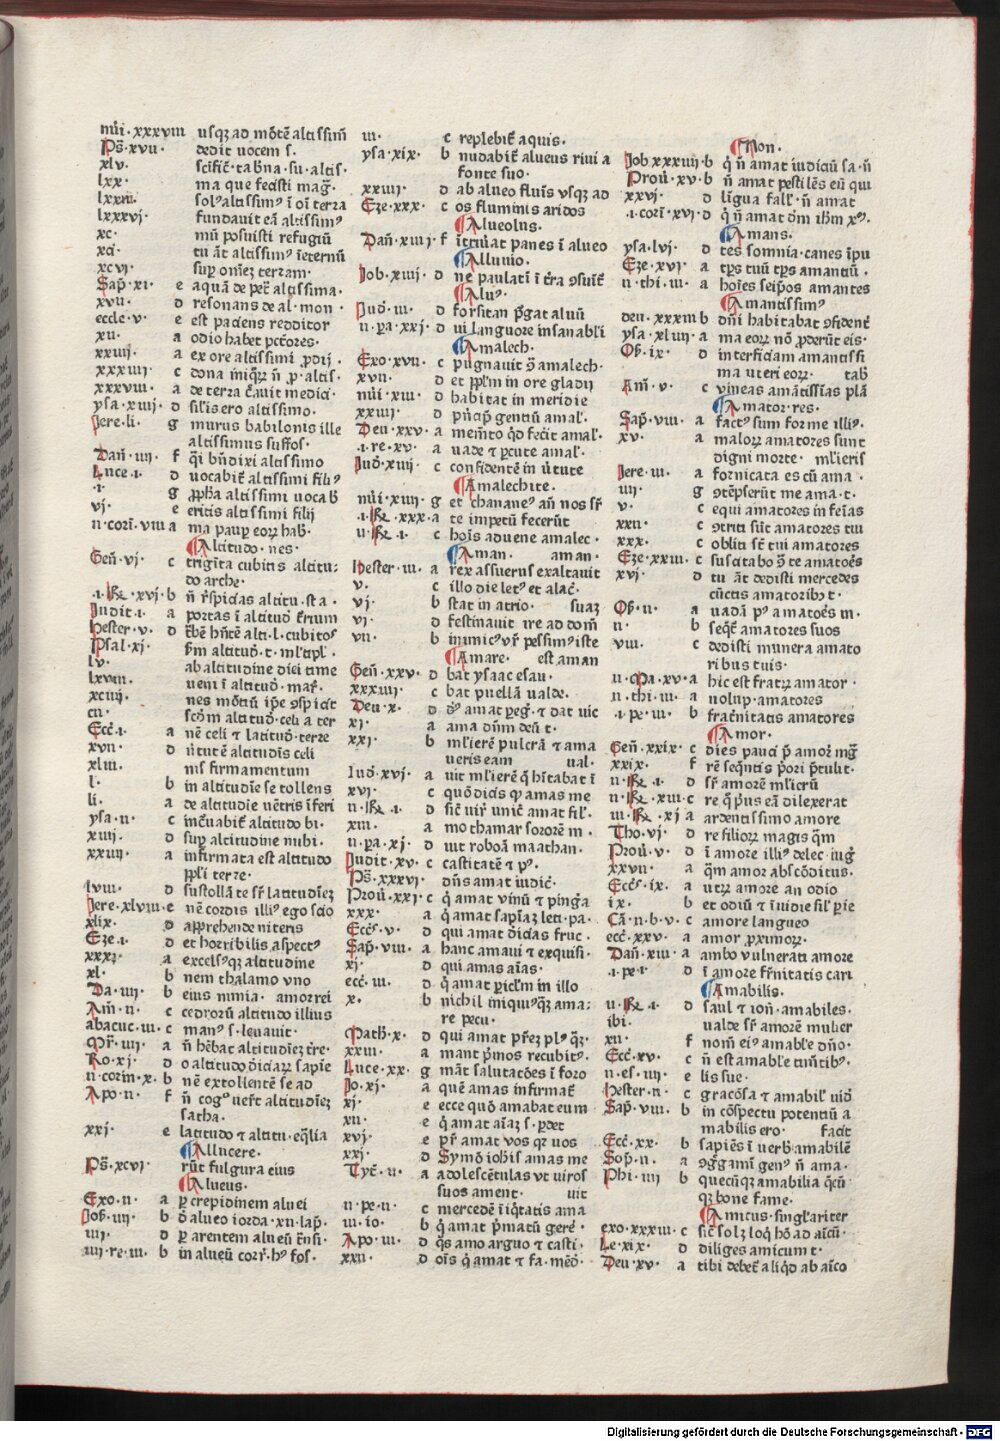 nūi·xxxviii usqꝫ ad mōtē altissim̄
Ps̄·xvii· dedit uocem s·
xlv· scīfic̄·tab̄na·su·altis·
lxx· ma que fecisti mag̅·
lxxxii· sol⁹altissim⁹ ī oī terra
lxxxvi· fundauit eā altissim⁹
xc· mū posuisti refugiū
xci· tu āt altissim⁹ īeternū
xcvi· sup̱ om̄ez terram·
Sap̄·xi· e aquā de pet̄ altissima·
xvii· d resonans de al·mon·
eccle·v· e est paciens redditor
xii· a odio habet pctōres·
xxiiii· a ex ore altissimi p̱dij·
xxxiiii c dona iniqꝝ n̄ p̱·altis·
xxxviii· a de terra c̄auit medici·
ysa·xiiij· d sil̄is ero altissimo·
Jere·li· g murus babilonis ille
altissimus suffos·
Dan̄·iii· f q̄i bn̄dixi altissimo
Luce·i· d uocabit̄ altissimi fili⁹
·i· g p̱pha altissimi uocab̄
vj· e eritis altissimi filij
ii·cori·viii a ma paup̱ eoꝝ hab̄·
Altitudo·nes·
Gen̄·vj· c trigīta cubitis altitu:
do arche·
·i·Re·xvj·b n̄ r̄spicias altitu·sta·
Judit·i· a portas ī altitud̄ t̄rium
Hester·v· d t̄bē hn̄tē alti·l·cubitos
Psal·xj· s̄m altitud̄·t·ml̄tipl̄·
lv· ab altitudine diei time
lxviii· ueni ī altitud̄·mar̄·
xciiij· nes mōtiū ip̄e ꝯspicit
cii· scōm altitud̄·celi a ter
Ecc̄·i· a nē celi ⁊ latitud̄·terre
xvii· d ūtutē altitudīs celi
xliii· ms firmamentum
l· b in altitudīe se tollens
li· a de altitudīe uētris īferi
ysa·ii· c inc̄uabit̄ altitudo bi·
xiiij· d sup̱ altitudine nubi·
xxiiij· a infirmata est altitudo
pp̱li terre·
lviii· d sustollā te sr̄ latitudīez
Jere·xlviii·e nē cordis illi⁹ ego scio
xlix· d app̱rehende niteris
Eze·i· d et horribilis aspect⁹
xxxi· a excelsqꝫ altitudine
xl· b nem thalamo uno
Da·iiij· b eius nimia· amorrei
Am̄·ii· c cedroꝝ altitudo illius
abacuc·iii·c man⁹ s·leuauit·
Mr̄·iiij· a n̄ hēbat altitudīez t̄re·
Ro·xj· d o altitudo diciaꝝ sapīe
ii·corin·x· b nē extollentē se ad
Apo·ii· f n̄ cog⁹uert̄ altitudīez
satha·
xxj· e latitudo ⁊ altitu·eq̄lia
Allucere·
Ps̄·xcvi· rūt fulgura eius
Alueus·
Exo·ii· a p̱ crepidinem aluei
Jos̄·iiij· b d̄ alueo iorda·xii·lap̄·
iiij· d p̱ arentem alueū t̄nsi·
iiii·re·iii· b in alueū cozr̄·h⁹ fos·
iii· c replebit̄ aquis·
ysa·xix· b nudabit̄ alueus riui a
fonte suo·
xxvii· d ab alueo fluīs vsqꝫ ad
Eze·xxx· c os fluminis aridos
Alueolus·
Dan̄·xiiij·f ītriuāt panes ī alueo
Alluuio·
Job·xiiij· d ne paulatī ī t̄ra ꝯsuit̄
Alu⁹·
Jud̄·iii· d forsitan p̱gat aluū
ii·pa·xxj·d ui languore insanabl̄i
Amalech·
Exo·xvii· c pugnauit ꝯ̄ amalech·
xvii· d et pp̱lm in ore gladij
nūi·xiii· d habitat in meridie
xxiiij· d pn̄cip̄ gentiū amal̄·
Deu·xxv· a mem̄to q̄d fecit amal̄·
·i·re·xv· a uade ⁊ p̱cute amal̄·
Jud̄·xiij· c confidentē in ūtute
Amalechite·
nūi·xiiij· g et chanane⁹ an̄ nos sr̄
·i·Re·xxx·a te impetū fecerūt
ii·Re·i· c hoīs aduene amalec·
Aman· aman·
Hester·iii· a rex assuerus exaltauit
v· c illo die let⁹ et alac̄·
vj· b stat in atrio· suaꝫ
vj· d festinauit ire ad dom̄
vii· b inimic⁹ur̄ pessim⁹iste
Amare· est aman
Gen̄·xxv· d bat ysaac esau·
xxxiiij· c bat puellā ualde·
Deu·x· d d⁹ amat p̱eg̅·⁊ dat uic
xj· a ama dn̄m deū t·
xxj· b ml̄ierē pulcrā ⁊ ama
ueris eam ual·
Iud̄·xvj· a uit ml̄ierē q̄ hītabat ī
xvj· c quōdicis qꝫ amas me
ii·Re·i· d sic̄ uir̄ unic̄ amat fil̄·
xiii· a mo thamar sororē m·
ii·pa·xj· d uit roboā maathan·
Judit·xv· c castitatē ⁊ p⁹·
Ps̄·xxxvj· dn̄s amat iudic̄·
Prou̅·xxj·c q̄ amat vinū ⁊ pinḡa
xxx· a q̄ amat sapīaꝫ leti·pa·
Eccs̄·v· d qui amat diciās fruc·
Sap̄·viii· a hanc amaui ⁊ exquisi·
xj· d qui amas aīas·
ecc̄·iii· d q̄ amat piclm̄ in illo
x· b nichil iniqui⁹qꝫ ama:
re pecu·
Math̄·x· d qui amat pr̄ez pl⁹ qꝫ·
xxiii· a mant p̄mos recubit⁹·
Luce·xx· g māt salutacōes ī foro
Jo·xj· a quē amas infirmat̄
xj· e ecce quō amabat eum
xii· e q̄ amat aīaꝫ s·p̱det
xvj· e pr̄ amat vos qꝫ uos
xxj· d Symō ioh̄is amas me
Tyt̄·ii· a adolescētulas vt uiros
suos ament· uit
ii·pe·ii· c mercedē ī iq̄tatis ama
iii·io· b q̄ amat p̄matū gere·
Apo·iii· d q̄s amo arguo ⁊ casti·
xxii· d oīs q̄ amat ⁊ fa·mēd̄·
Non·
Job xxxiiij·b q̄ n̄ amat iudiciū sa·n̄
Prou̅·xv·b n̄ amat pestilēs eū qui
xxvj· d līgua fall̄·n̄ amat
·i·cori·xvj·d q̄ n̄ amat dn̄m ih̄m x⁹·
Amans·
ysa·lvj· d tes somnia·canes īpu
Eze·xvj· a tp̱s tuū tp̱s amantiū·
ii·thi·iii· a hoīes seip̄os amantes
Amantissim⁹
deu·xxxiii b dn̄i habitabat ꝯfident̄
ysa·xliii· a ma eoꝝ nō p̱derūt eis·
Os̄·ix· d interficiam amantissi
ma uteri eoꝝ· tab̄
Am̄·v· c vineas amātissīas plā
Amator·res·
Sap̄·viii· a fact⁹sum forme illi⁹·
xv· a maloꝝ amatores sunt
digni morte· ml̄ieris
Jere·iii· a fornicata es cū ama·
iiij· g ꝯtēpserūt me ama·t·
v· c equi amatores in feīas
xxii· c ꝯtriti sūt amatores tui
xxx· c obliti st̄ tui amatores
Eze·xxiii· c suscitabo ꝯ̄ te amatoēs
xvj· d tu āt dedisti mercedes
cūctis amatoribꝫ t·
Os̄·ii· a uadā p⁹ amatoēs m·
ii· b seqt̄ amatores suos
viii· c dedisti munera amato
ribus tuis·
ii·Ma·xv·a hic est fratꝝ amator·
ii·thi·iii· a uolup·amatores
·i·pe·iii· b frat̄nitatis amatores
Amor·
Gen̄·xxix· c dies pauci p̄ amoꝝ mg̅
xxix· f rē seqn̄tis p̄ori p̄tulit·
ii·Re·i· d sr̄ amorē ml̄ierū
ii·Re·xiii·c re q̄ p̄us eā dilexerat
iii·Re·xj a ardentissimo amore
Tho·vj· d re filioꝝ magis qꝫm
Prou̅·v· d ī amore illi⁹ delec·iug̅
xxvii· a qꝫm amor abscōditus·
Eccs̄·ix· a utꝝ amore an odio
ix· b et odiū ⁊ īuidie sil̄ p̱ie
Cā·ii·b·v·c amore langueo
ecc̄·xxv· a amor p̱ximoꝝ·
Dan̄·xiii· a ambo vulnerati amore
·i·pe·i· d ī amore fr̄nitatis cari
Amabilis·
ii·Re·i· d saul ⁊ ion̄·amabiles·
ibi· ualde sr̄ amorē mulier
xii· f nom̄ ei⁹ amabl̄e dn̄o·
Ecc̄·xv· c n̄ est amabl̄e tim̄tibꝫ·
ii·es·iiij· e lis sue·
Hester·ii· c graciōsa ⁊ amabil̄ uid̄
Sap̄·viii· b in cōspectu potentiū a
mabilis ero· facit
Ecc̄·xx· b sapiēs ī uerb̄ amabilē
Sop̄·ii· a ꝯg̅gamī gens⁹ n̄ ama·
Phi·iiij b quecūqꝫ amabilia q̄cū
qꝫ bone fame·
Amicus·singl̄ariter
exo·xxxiii· c sic̄ solꝫ loq̄ hō ad aīcū·
Le·xix· d diliges amicum t·
Deu·xv· a tibi debet̄ aliq̄d ab aīco
Digitalisierung gefördert durch die Deutsche Forschungsgemeinschaft - DFG